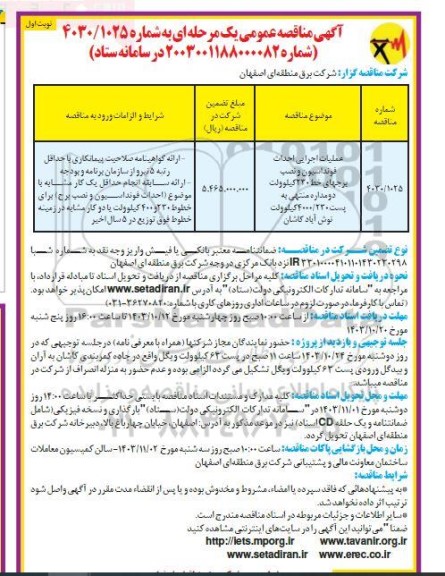 نوبت اول
آگهی مناقصه عمومی یک مرحله‌ای به شماره ۴۰۳۰/۱۰۲۵
(شماره ۲۰۰۳۰۰۱۱۸۸۰۰۰۰۸۲ در سامانه ستاد)
شرکت مناقصه گزار: شرکت برق منطقه‌ای اصفهان
شماره مناقصه
موضوع مناقصه
مبلغ تضمین شرکت در مناقصه (ریال)
شرایط و الزامات ورود به مناقصه
۴۰۳۰/۱۰۲۵
عملیات اجرایی احداث
فونداسیون و نصب
برجهای خط ۲۳۰ کیلوولت
دومداره منتهی به
پست ۴۰۰۰/۲۳۰ کیلوولت
نوش آباد کاشان
۵,۴۶۵,۰۰۰,۰۰۰
- ارائه گواهینامه صلاحیت پیمانکاری با حداقل
رتبه ۵ نیرو از سازمان برنامه و بودجه
- ارائه سابقه انجام حداقل یک کار مشابه با
موضوع (احداث فونداسیون و نصب برج) برای
خطوط ۲۳۰ و ۴۰۰ کیلوولت یا دو کار مشابه در زمینه
خطوط فوق توزیع در ۵ سال اخیر
نوع تضمین شرکت در مناقصه: ضمانتنامه معتبر بانکی یا فیش واریز وجه نقد به شماره شبا
نزد بانک مرکزی در وجه شرکت برق منطقه ای اصفهان
نحوه دریافت و تحویل اسناد مناقصه: کلیه مراحل برگزاری مناقصه از دریافت و تحویل اسناد تا مبادله قرارداد، با
مراجعه به "سامانه تدارکات الکترونیکی دولت (ستاد)" به آدرس www.setadiran.ir امکان پذیر خواهد بود.
(تماس با کارفرما، در صورت لزوم در ساعات اداری روزهای کاری با شماره: ۳۶۲۷۰۸۲۰-۰۳۱)
مهلت دریافت اسناد مناقصه: از ساعت ۱۰:۰۰ صبح روز چهارشنبه مورخ ۱۴۰۳/۱۰/۱۲ تا ساعت ۱۶:۰۰ روز پنج شنبه
مورخ ۱۴۰۳/۱۰/۲۰
جلسه توجیهی و بازدید از پروژه: حضور نمایندگان مجاز شرکتها (همراه با معرفی نامه) در جلسه توجیهی که در
روز دوشنبه مورخ ۱۴۰۳/۱۰/۲۴ ساعت ۱۱ صبح در پست ۶۳ کیلوولت ویگل واقع در جاده کمربندی کاشان به آران
و بیدگل ورودی پست ۶۳ کیلوولت ویگل تشکیل می گردد الزامی بوده و عدم حضور به منزله انصراف از شرکت در
مناقصه میباشد.
مهلت و محل تحویل اسناد مناقصه: کلیه مدارک و مستندات اسناد مناقصه بایستی حداکثر تا ساعت ۱۴:۰۰ روز
دوشنبه مورخ ۱۴۰۳/۱۱/۰۱ در "سامانه تدارکات الکترونیکی دولت (ستاد)" بارگذاری و نسخه فیزیکی (شامل
ضمانتنامه و یک حلقه CD اسناد) نیز در موعد مذکور به آدرس: اصفهان، خیابان چهارباغ بالا، دبیرخانه شرکت برق
منطقه‌ای اصفهان تحویل گردد.
زمان و محل بازگشایی پاکات مناقصه: ساعت ۱۰:۰۰ صبح روز سه شنبه مورخ ۱۴۰۳/۱۱/۰۲ - سالن کمیسیون معاملات
ساختمان معاونت مالی و پشتیبانی شرکت برق منطقه‌ای اصفهان
شرایط مناقصه:
*به پیشنهادهائی که فاقد سپرده یا امضاء، مشروط و مخدوش بوده و یا پس از انقضاء مدت مقرر در آگهی واصل شود
ترتیب اثر داده نخواهد شد.
*سایر اطلاعات و جزئیات مربوطه در اسناد مناقصه مندرج است.
ضمناً "می توانید این آگهی را در سایت های اینترنتی مشاهده کنید
http://iets.mporg.ir www.tavanir.org.ir
www.setadiran.ir www.erec.co.ir